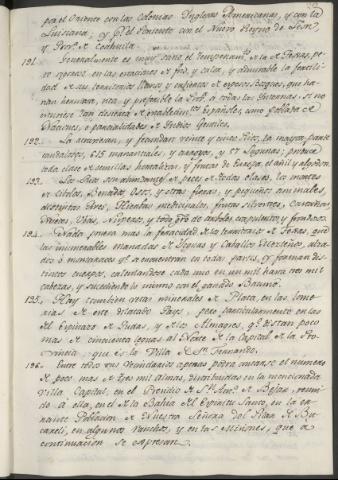 por el Oriente con las Colonias Ynglesas Americanas, y con la
Luisiana; y pr. el Poniente con el Nuevo Reyno de Leon,
y Prov.a de Coahuila.
131. Generalmente es muy sano el temperamto. de la de Texas, pe-
ro rigoroso en las estaciones de frio, y calor, y admirable la fertili-
dad de sus territorios llanos y
nos tan desierta de establecimtos. Españoles, como poblada de
Naciones, o parcialidades de Yndios Gentiles.
132. La atraviesan, y fecundan veinte y cinco Rios, la mayor parte
caudalosos, 615 manantiales, y arroyos, y 17 Lagunas; produce
toda clase de semillas hortalizas, y frutas de Europa, el añil y algodon.
133. La Pita, abundancia de peces de todas clases, los montes
de Cibolos, Benados, Osos, y otras fieras, y pequeños animales,
distintas Aves, Plantas medicinales, frutas silvestres, Castaños,
Nueces, Ubas, Nisperos, y todo gro. de arboles corpulentos y frondosos.
134. Nada prueva mas la feracidad de los territorios de Texas, que
las innumerables manadas de Yeguas y Caballos Mesteños, alza-
dos o montaraces qe. se encuentran en todas partes, y forman dis-
tintos cuerpos, calculandose cada uno en un mil hasta tres mil
cabezas, y sucediendo lo mismo con el ganado Bacuno.
135. Hay tambien vetas minerales de Plata, en las lome-
rias de este dilatado Pays, pero particularmente en las
del Espinazo de Judas, y de los Almagres, qe. distan poco
mas de cincuenta leguas al Norte de la Capital de la Pro-
vincia, que es la Villa de Sn. Fernando.
136. Entre todo sus Vecindarios apenas podra contarse el numero
de poco mas de tres mil almas, distribuidas en la mencionada
Villa Capital, en el Presidio de Sn. Anto. de Bejar, reuni-
do á ella, en el de la Bahia del Espiritu Santo, en la
Poblacion de Nuestra Señora del Pilar de Bu-
careli, en algunos ranchos, y en las Misiones, que a
continuacion se expresan.